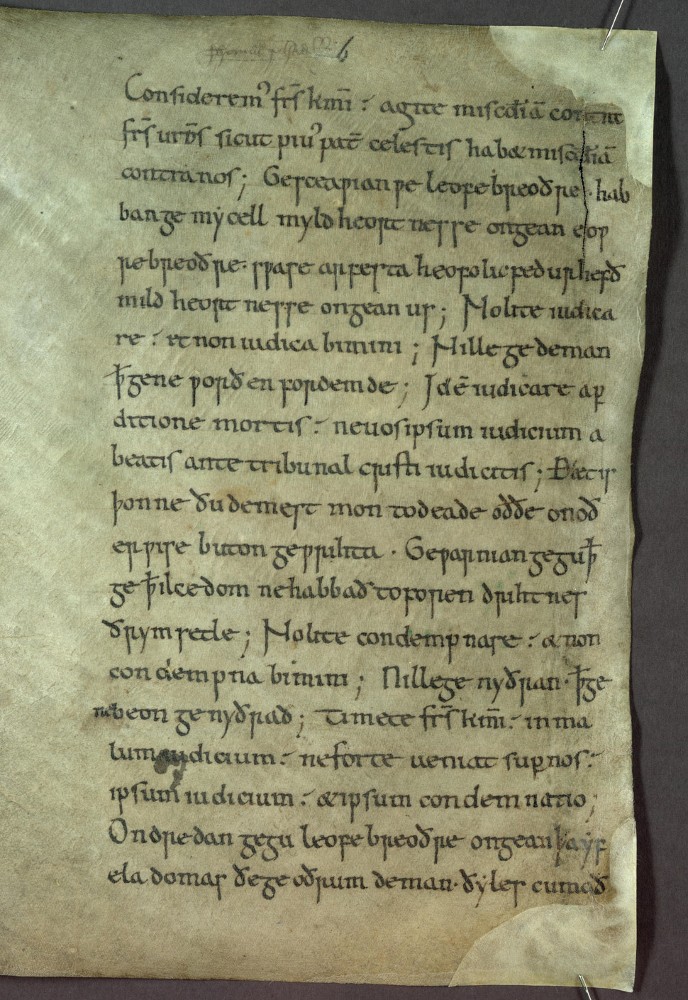 Considerem᷒ fr̄s km̄i : agite miscd̄iā cont̄nt
fr̄s ur̄os sicut piu᷒ pat̄ celestis habæ misc̄d̄iā
contra nos; Gesceapian ƿe leofe breoðre · hab
ban ge mẏcell myldheort nesse ongean eoƿ
re breoðre · sƿase arfesta heofolic fed ur hefð
mild heort nesse ongean us; Nolite iudica
re : et non iudica bimini ; Nille ge deman
ꝥ ge ne ƿorðen fordemde ; Idē iudicare aꝑ
ditione mortis : ne uos ipsum iudicium a
beatis ante tribunal cristi iudicitis ; Ðæt is
þonne ðu demest mon to deade oððe on oð
er ƿire buton geƿrihta · Geƿarnian ge gu ꝥ
ge ꝥ ilce dom ne habbað toforen drihtnes
ðrymsetle ; Nolite condempnare : & non
condempna bimini ; Nillege nyðran · ꝥ ge
ne beon genyðrad ; Timete fr̄s km̄i : in ma
lum iudicium : ne forte ueniat suꝑ nos :
ipsum iudicium : & ipsum condemnatio ;
Ondredan ge gu leofe breoðre ongean þa ẏf
ela domas ðe ge oðrum deman · ðẏles cumað